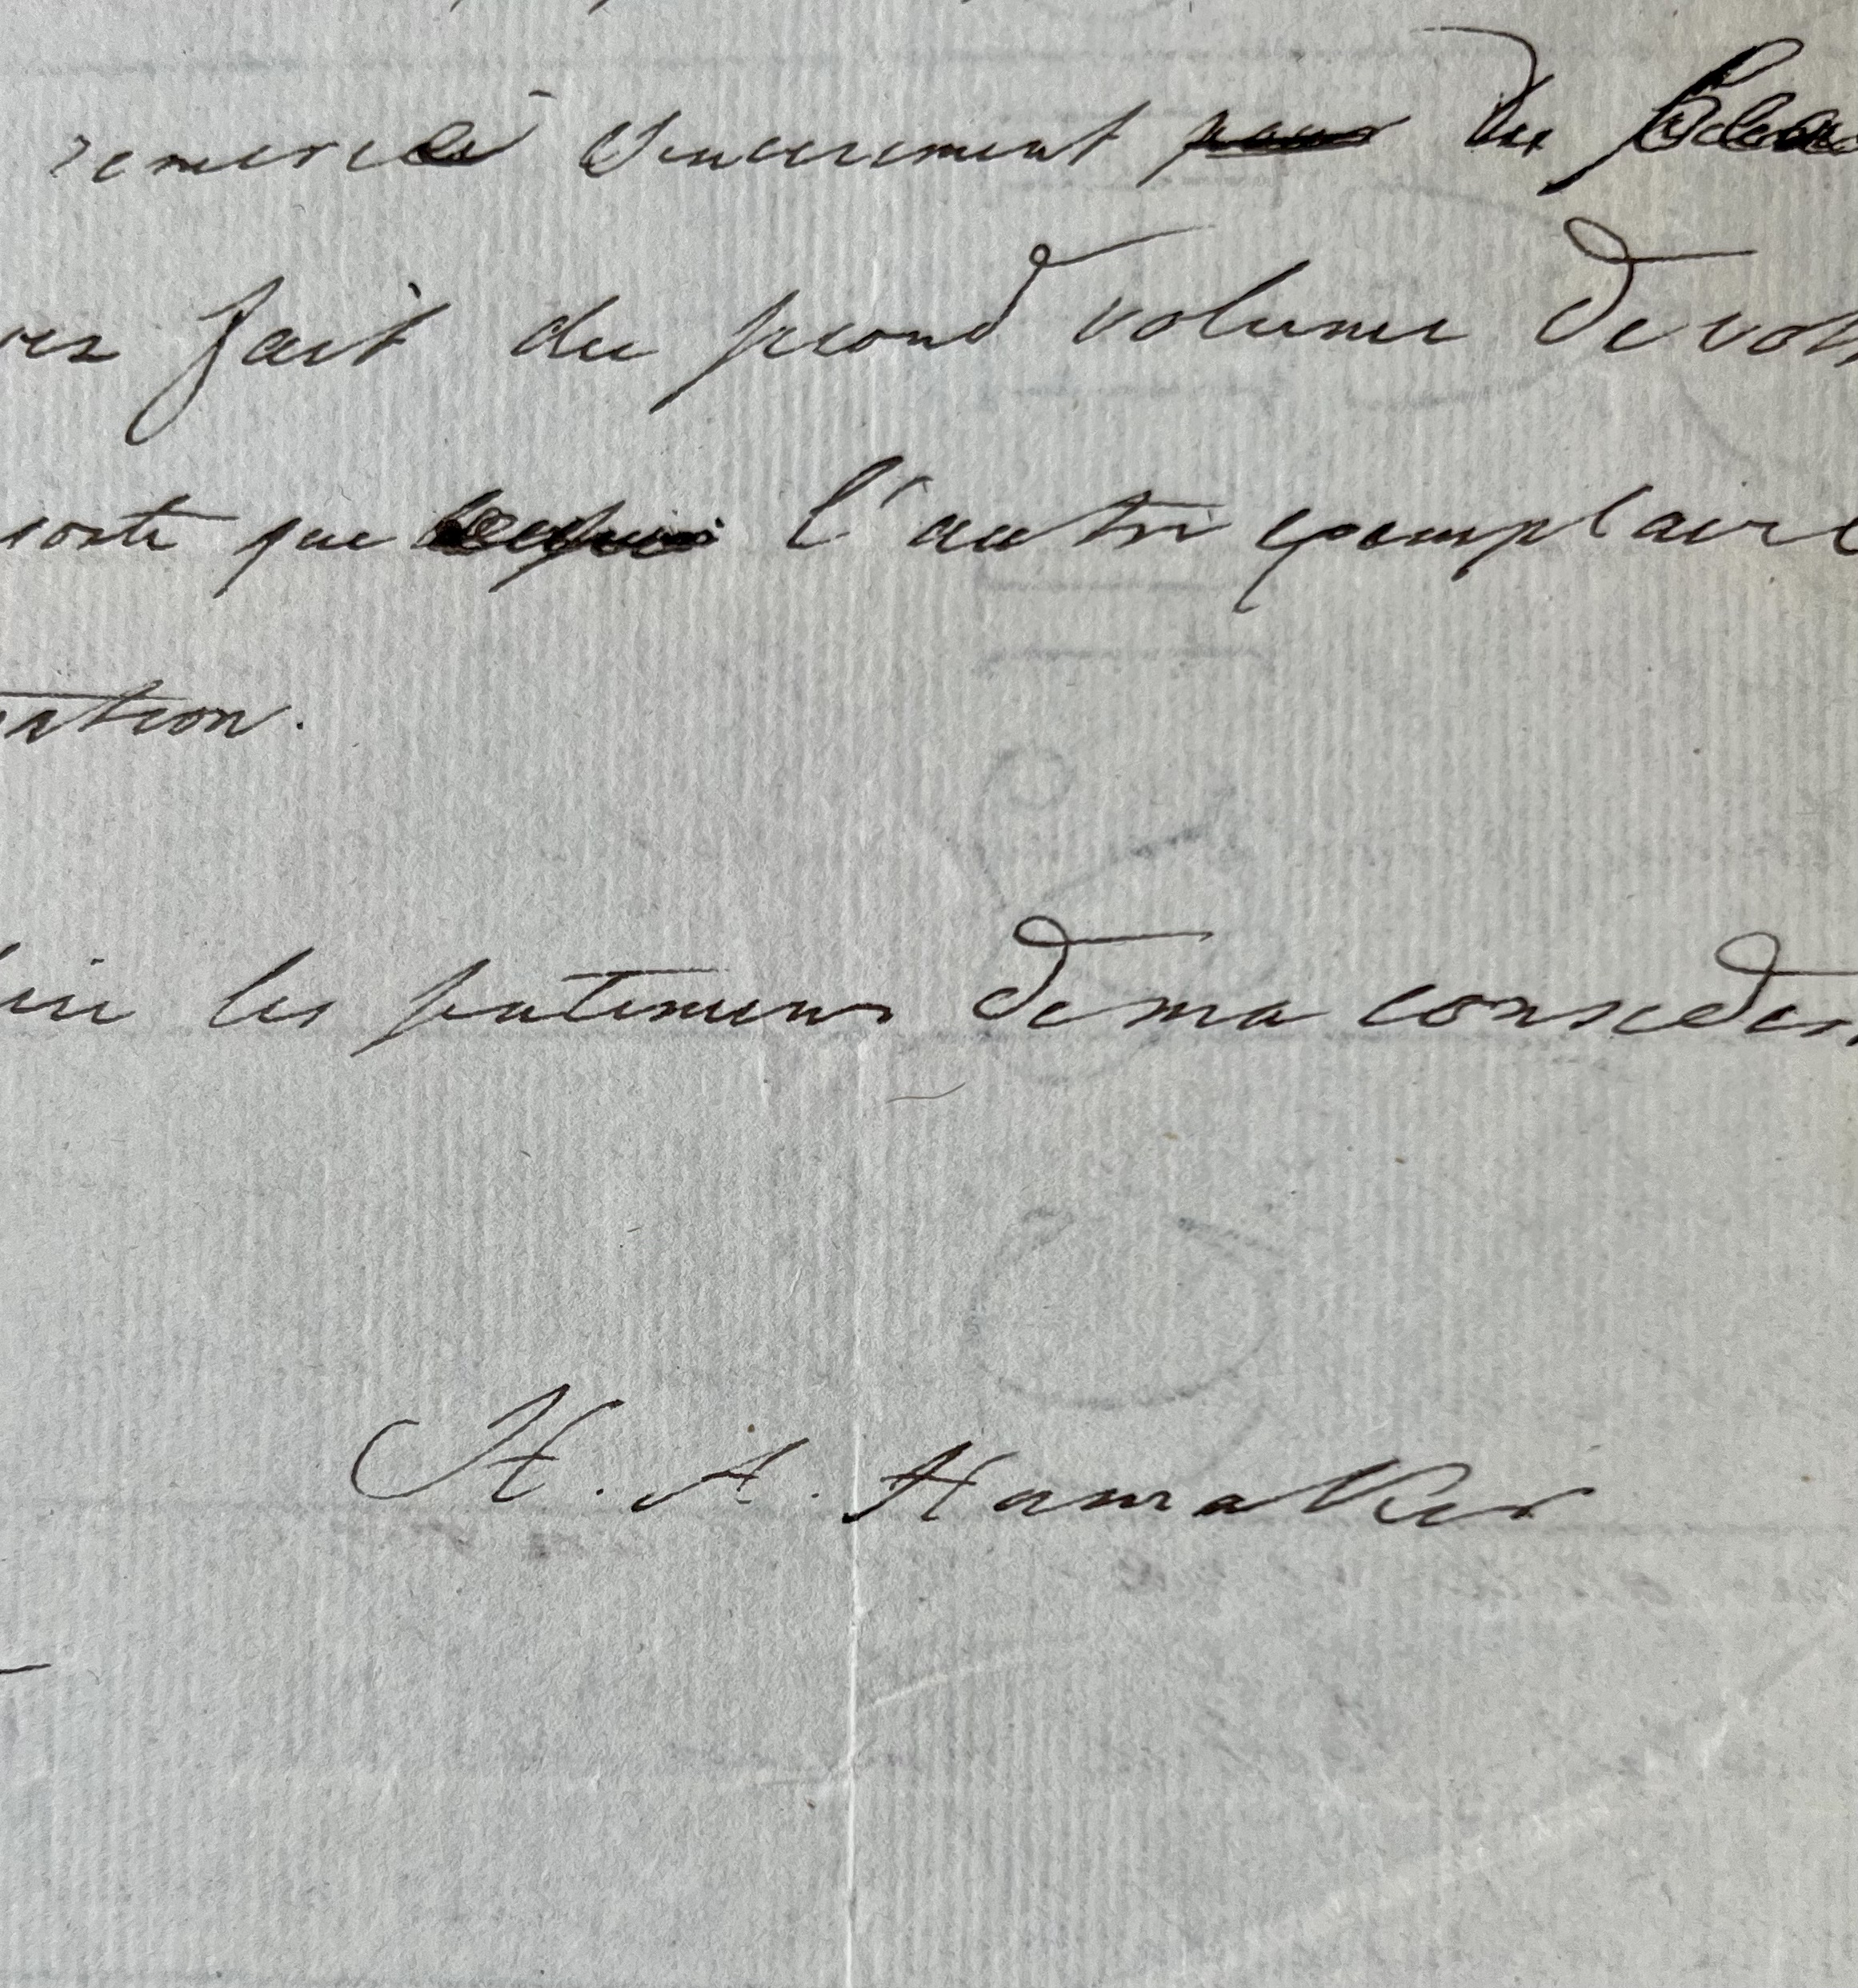 remercie sincerement pour du
fait du second volume de vot
sorte que l'autre exemplaire
ation.
les sentimens de ma consider
H. A. Hamaker